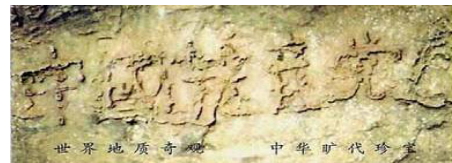 中国共產党亡
世界地质奇观 中华旷代珍宝